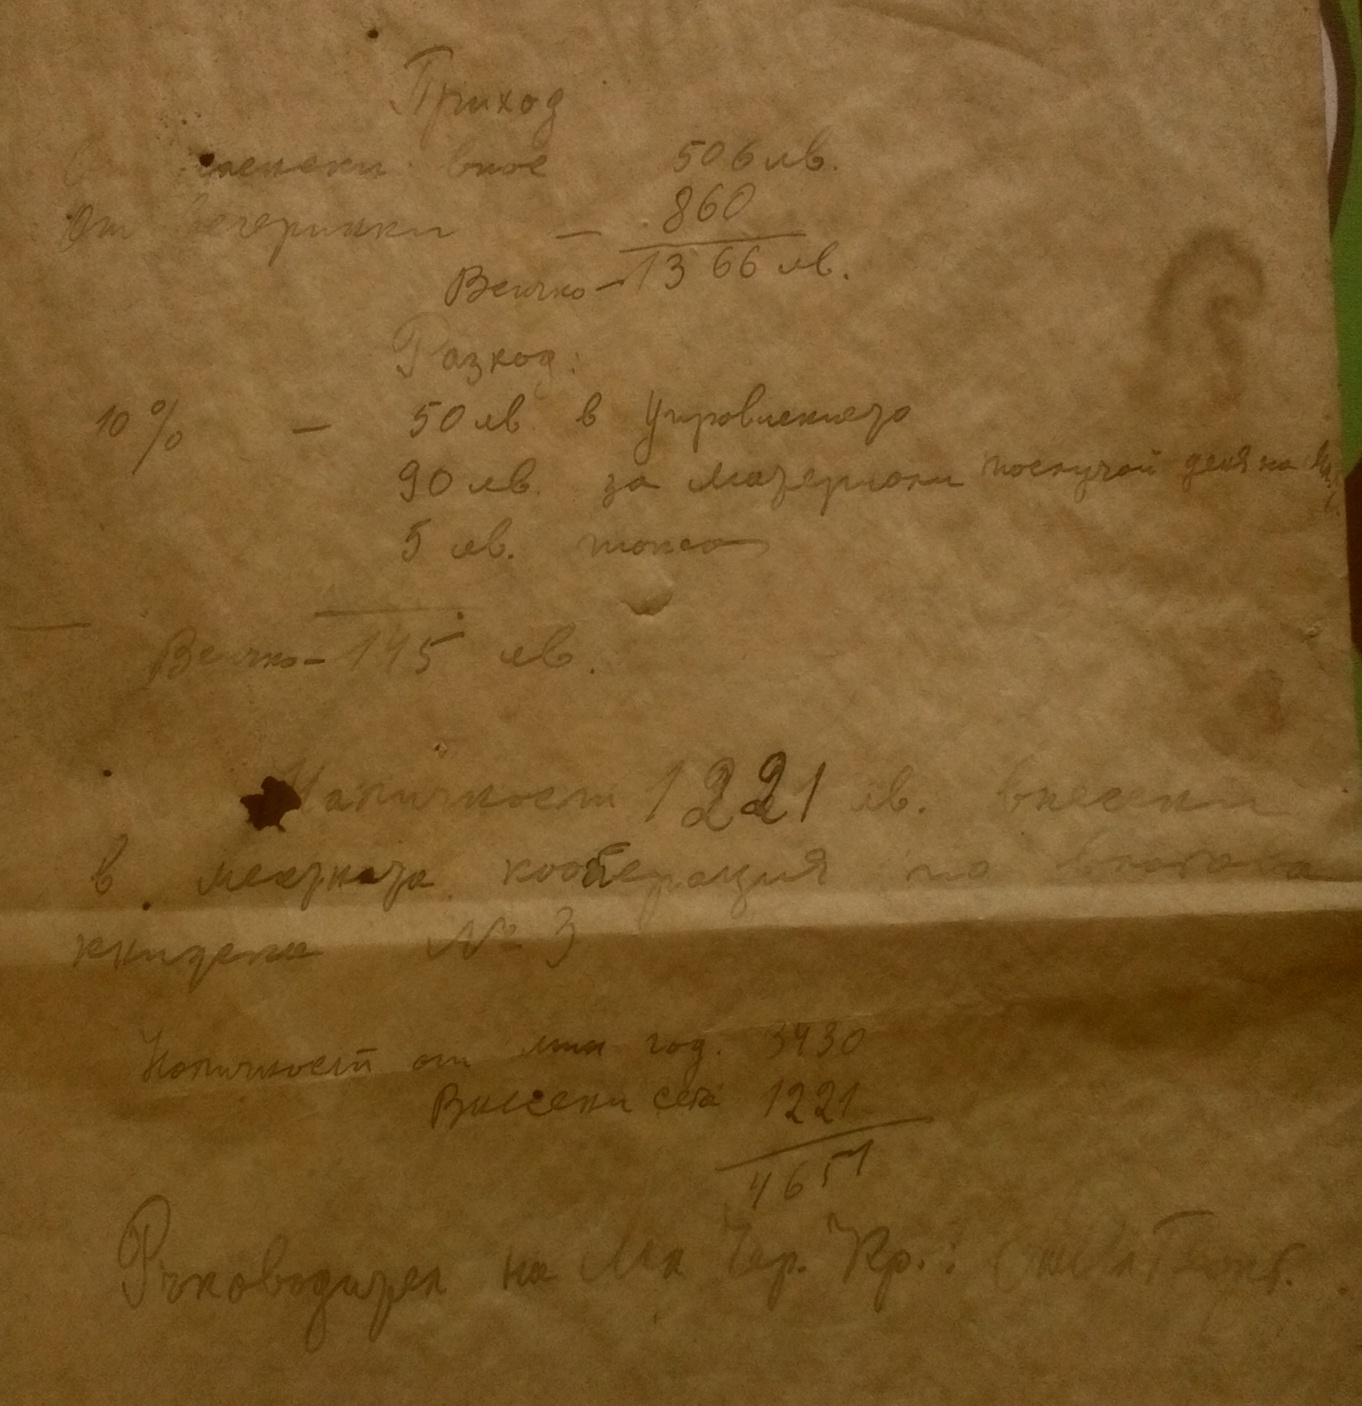 Приход
членски внос 506 лв.
От вечеринки — 860
Всичко — 1366 лв.
Разход:
10% — 50 лв. в Управлението
90 лв. за материали по случай деня на
5 лв. такса
Всичко — 145 лв.
Наличност 1221 лв. внесени
в местната кооперация по влогова
книжка № 3
Наличност от мин. год. 3430
Внесени сега 1221
4651
Ръководител на Мл. Чер. Кр.: